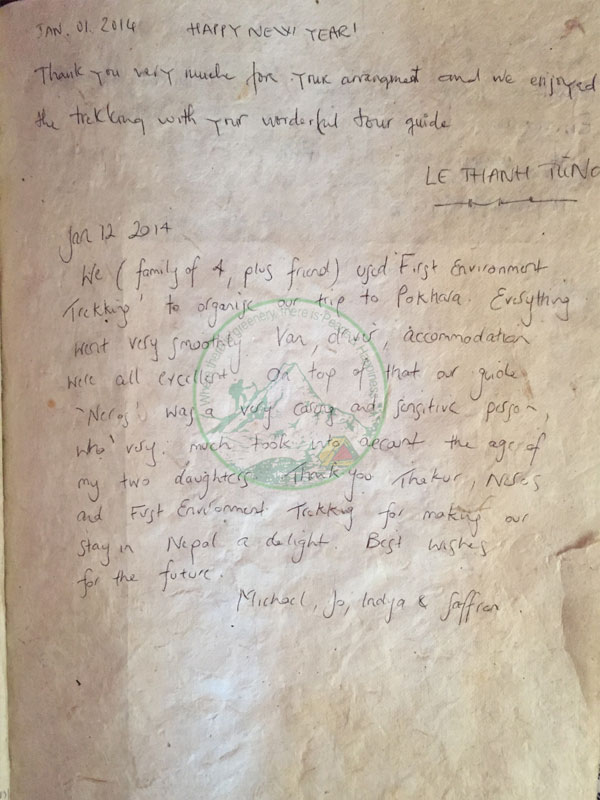 JAN. 01. 2014 HAPPY NEW YEAR!
Thank you very much for your arrangment and we enjoyed
the trekking with your wonderful tour guide
LE THANH TUNG
Jan 12 2014
We (family of 4, plus friend) used 'First Environment
Trekking' to organise our trip to Pokhara. Everything
went very smoothly. Van, driver, accommodation
were all excellent. On top of that our guide
'Neros' was a very caring and sensitive person,
who very much took into account the age of
my two daughters. Thank you Thakur, Neros
and First Environment Trekking for making our
stay in Nepal a delight. Best wishes
for the future.
Michael, Jo, Indya & Saffron
Where there is Greenery, There is Peace & Happiness